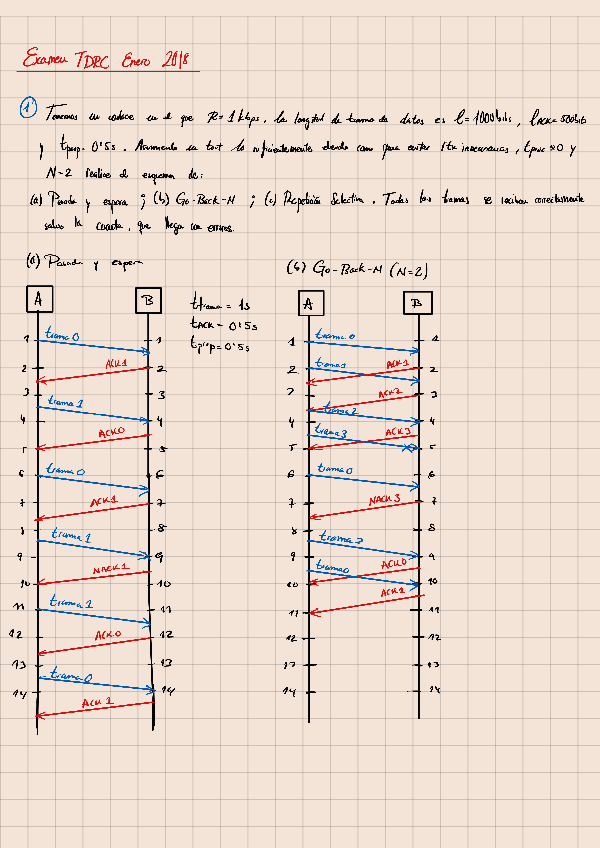 Examen TDRC Enero 2018
1º Tenemos un enlace en el que R = 1 kbps, la longitud de trama de datos es l = 1000 bits, lACK = 500 bits
y tprop = 0'5s. Asumiendo un tout lo suficientemente elevado como para evitar rtx innecesarias, tproc ≈ 0 y
N=2 realice el esquema de:
(a) Parada y espera ; (b) Go-Back-N ; (c) Repetición Selectiva. Todas las tramas se reciben correctamente
salvo la cuarta, que llega con errores.
(a) Parada y espera
A B
ttrama = 1s
tACK = 0'5s
tprop = 0'5s
1 trama 0 1
2 ACK1 2
3 trama 1 3
4 ACK0 4
5 5
6 trama 0 6
7 ACK1 7
8 trama 1 8
9 NACK1 9
10 10
11 trama 1 11
12 ACK0 12
13 trama 0 13
14 ACK 1 14
(b) Go-Back-N (N=2)
A B
1 trama 0 1
2 trama 1 ACK1 2
3 ACK2 3
4 trama 2 4
5 trama 3 ACK3 5
6 trama 0 6
7 NACK3 7
8 trama 3 8
9 trama 0 ACK0 9
10 ACK1 10
11 11
12 12
13 13
14 14